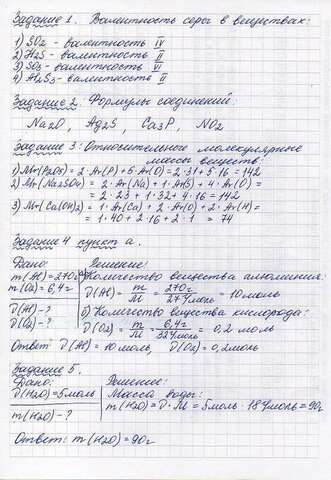 Задание 1. Валитность серы в веществах:
1) SO2 - валитность IV
2) H2S - валитность II
3) SO3 - валитность VI
4) Al2S3 - валитность II
Задание 2. Формулы соединений:
Na2O, Ag2S, Ca3P, NO2
Задание 3: Относительное молекулярные
массы веществ:
1) Mr(P2O5) = 2·Ar(P) + 5·Ar(O) = 2·31 + 5·16 = 142
2) Mr(Na2SO4) = 2·Ar(Na) + 1·Ar(S) + 4·Ar(O) =
= 2·23 + 1·32 + 4·16 = 142
3) Mr(Ca(OH)2) = 1·Ar(Ca) + 2·Ar(O) + 2·Ar(H) =
= 1·40 + 2·16 + 2·1 = 74
Задание 4 пункт а.
Дано: Решение:
m(Al) = 270г а) Количество вещества алюминия:
m(O2) = 6,4г ν(Al) = m/M = 270г/27г/моль = 10моль
ν(Al) - ? б) Количество вещества кислорода:
ν(O2) - ? ν(O2) = m/M = 6,4г/32г/моль = 0,2 моль
Ответ ν(Al) = 10моль, ν(O2) = 0,2моль
Задание 5.
Дано: Решение:
ν(H2O) = 5моль Масса воды:
m(H2O) - ? m(H2O) = ν · M = 5моль · 18г/моль = 90г
Ответ: m(H2O) = 90г